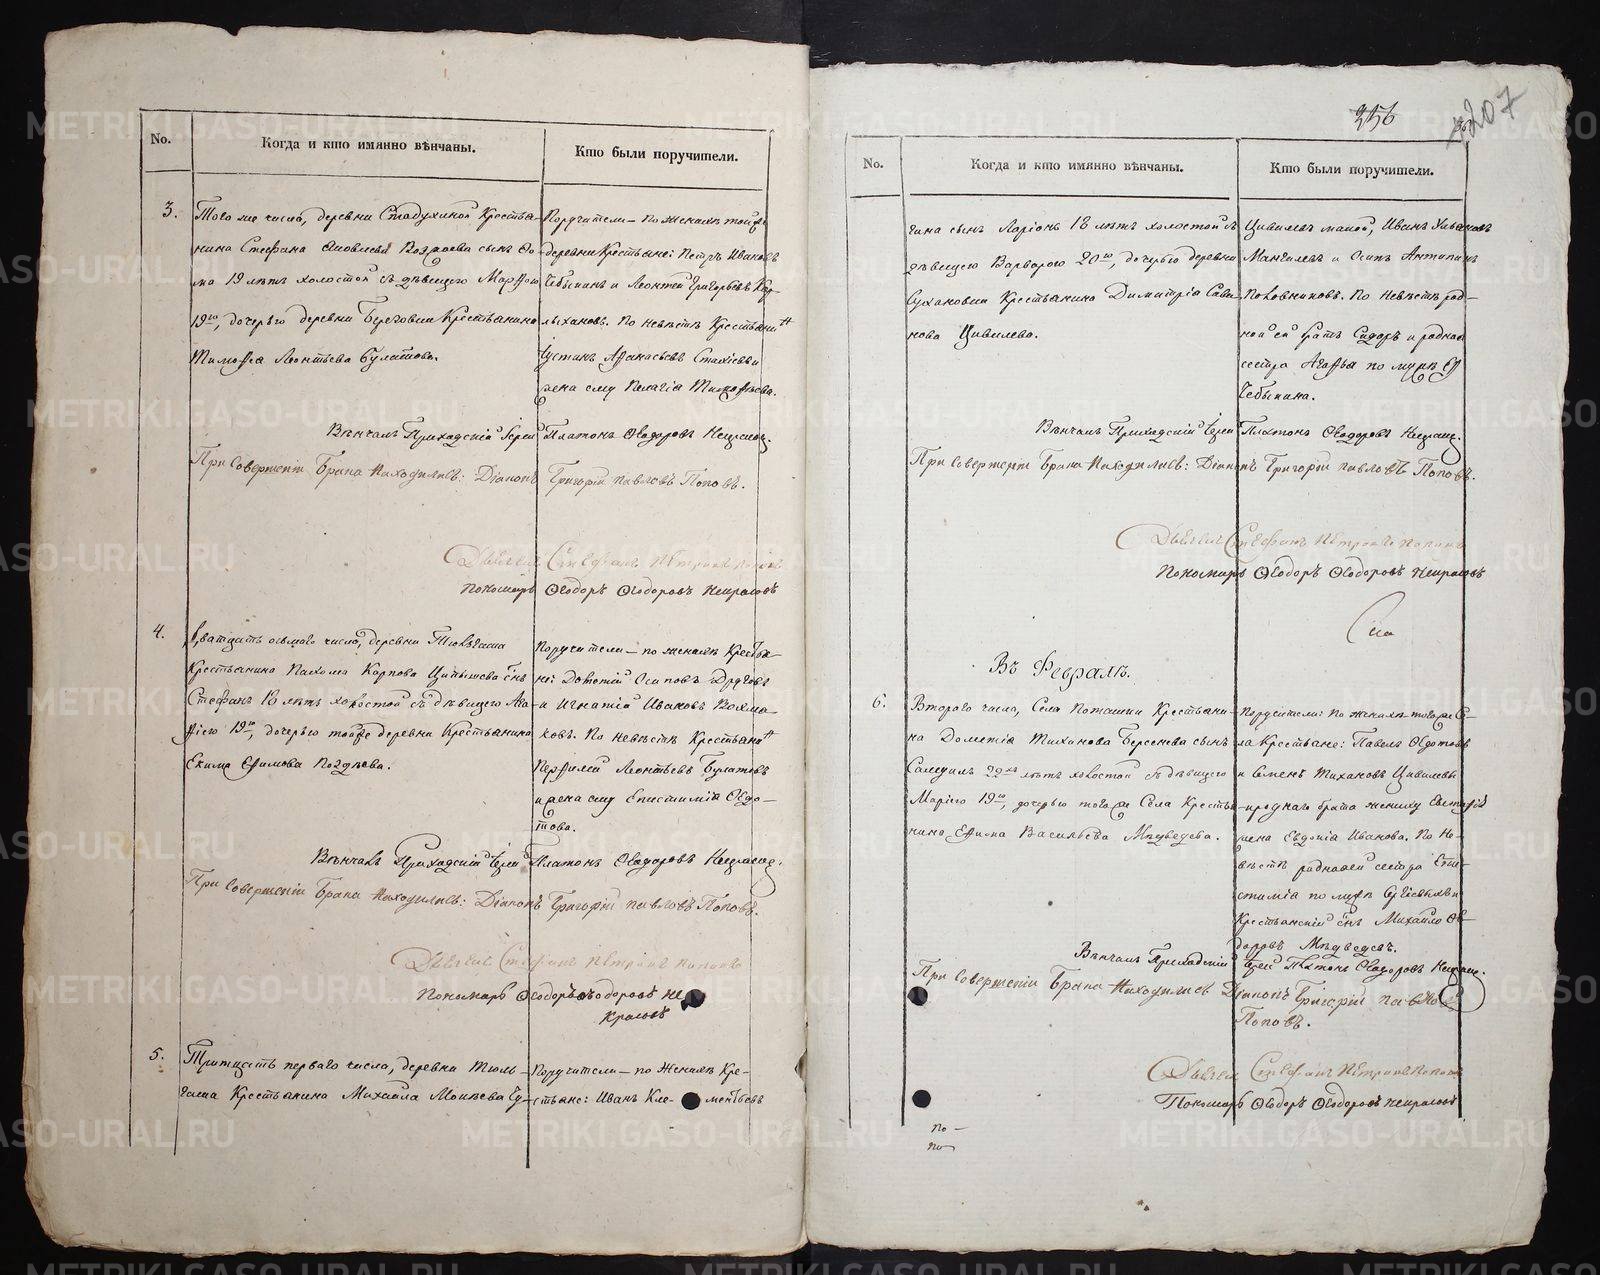 No.
Когда и кто имянно вѣнчаны.
Кто были поручители.
3.
Того же числа, деревни Стадухиной Крестья-
нина Стефана Яковлева сынъ Ѳо-
ма 19 лѣтъ холостой съ дѣвицею Марфою
19ю, дочерью деревни Береговыя Крестьянина
Тимофея Леонтьева Булатова.
Поручители – по женихѣ тойже
деревни Крестьяне: Петръ Ивановъ
Чебыкинъ и Леонтей Григорьевъ
по невѣстѣ Крестьянинъ
Іустинъ Афанасьевъ
жена ему Пелагіа Тимофѣева.
Вѣнчалъ Приходскій Іерей Платонъ Ѳеодоровъ
При совершеніи Брака находились: Діаконъ Григорій Павловъ Поповъ.
Дьячекъ Стефанъ Петровъ Поповъ
Пономарь Ѳеодоръ Ѳеодоровъ Некрасовъ
4.
Дватцать осьмаго числа, деревни
Крестьянина Пахома Карпова сынъ
Стефанъ 18 лѣтъ холостой съ дѣвицею Ага-
фіею 19ю, дочерью тойже деревни Крестьянина
Екима Ефимова Поздѣева.
Поручители – по женихѣ Крестья-
не: Осиповъ
и Игнатій Ивановъ
по невѣстѣ Крестьянинъ
Перфилей Леонтьевъ Булатовъ
и жена ему Епистимія Ѳедо-
това.
Вѣнчалъ Приходскій Іерей Платонъ Ѳеодоровъ
При совершеніи Брака находились: Діаконъ Григорій Павловъ Поповъ.
Дьячекъ Стефанъ Петровъ Поповъ
Пономарь Ѳеодоръ Ѳеодоровъ Не-
красовъ
5.
Тритцать перваго числа, деревни Тюль-
гаша Крестьянина Михаила Моисѣева
Поручители – по женихѣ Кре-
стьяне: Иванъ Клементьевъ
356
207
No.
Когда и кто имянно вѣнчаны.
Кто были поручители.
сынъ Ларіонъ 18 лѣтъ холостой съ
дѣвицею Варварою 20ю, дочерью деревни
Сухановки Крестьянина Димитріа Сави-
нова Цивилево.
Цивилевъ Иванъ
и Осипъ Антипинъ
Половниковъ. По невѣстѣ род-
ной ей братъ Сидоръ и родная
сестра Агафья по мужѣ ея
Чебыкина.
Вѣнчалъ Приходскій Іерей Платонъ Ѳеодоровъ
При совершеніи Брака находились: Діаконъ Григорій Павловъ Поповъ.
Дьячекъ Стефанъ Петровъ Поповъ
Пономарь Ѳеодоръ Ѳеодоровъ Некрасовъ
Въ Февралѣ.
6.
Второго числа, Села Поташки Крестьяни-
на Дометія Тиханова Берсенева сынъ
лѣтъ холостой съ дѣвицею
Маріею 19ю, дочерью тогоже Села Крестья-
нина Ефима Васильева Мѣдведева.
Поручители: по женихѣ тогоже Се-
ла Крестьяне: Павелъ Ѳедотовъ
и Семенъ Тихановъ Цивилевы
и роднаго брата жениху
жена Евдокія Иванова. По не-
вѣстѣ родная ей сестра Епи-
стиміа по мужѣ
Крестьянскій сынъ Михайло Ѳе-
доровъ Мѣдведевъ.
Вѣнчалъ Приходскій Іерей Платонъ Ѳеодоровъ
При совершеніи Брака находились Діаконъ Григорій Павловъ
Поповъ.
Дьячекъ Стефанъ Петровъ Поповъ
Пономарь Ѳеодоръ Ѳеодоровъ Некрасовъ
по –
по
METRIKI.GASO-URAL.RU